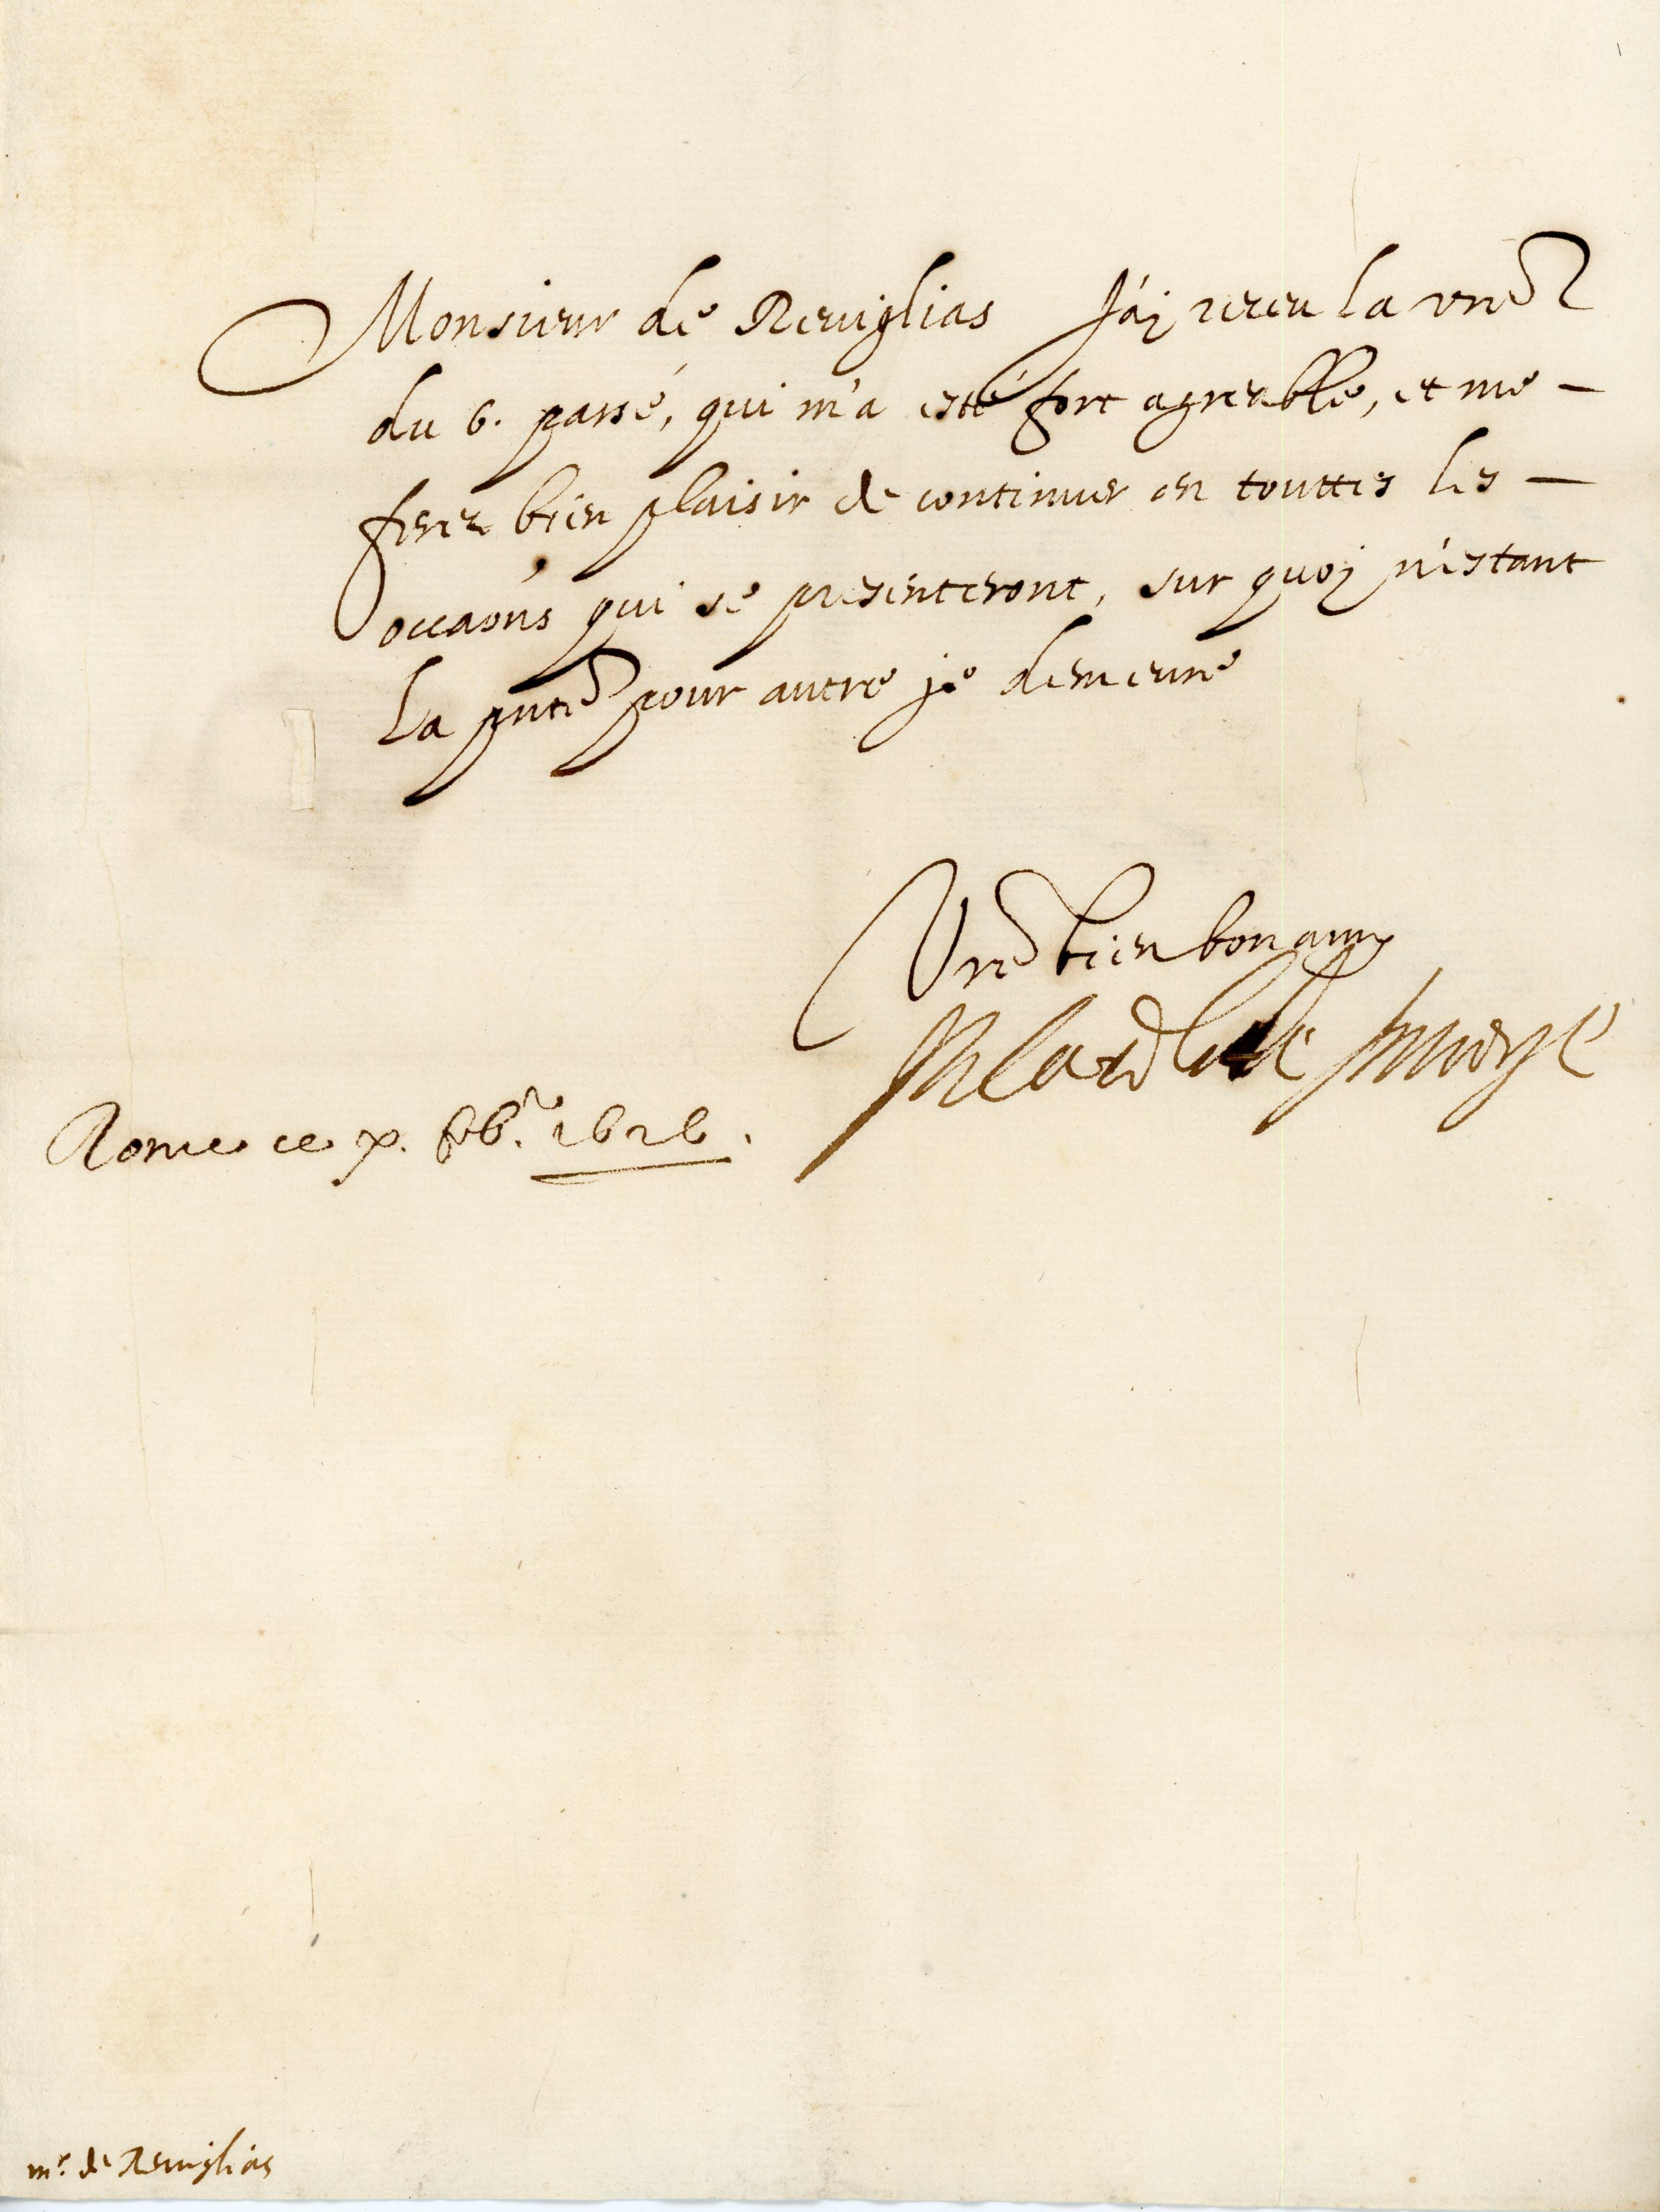 Monsieur de Reviglias J'ay receu la vre
du 6. passé, qui m'a esté fort agreable, et me -
ferez bien plaisir de continuer en touttes les -
occaons qui se presenteront, sur quoy n'estant
la pnte pour autre je demeure
Vre bien bon amy
le Card de Savoye
Rome ce x. feb.r 1626.
m.r de Reviglias